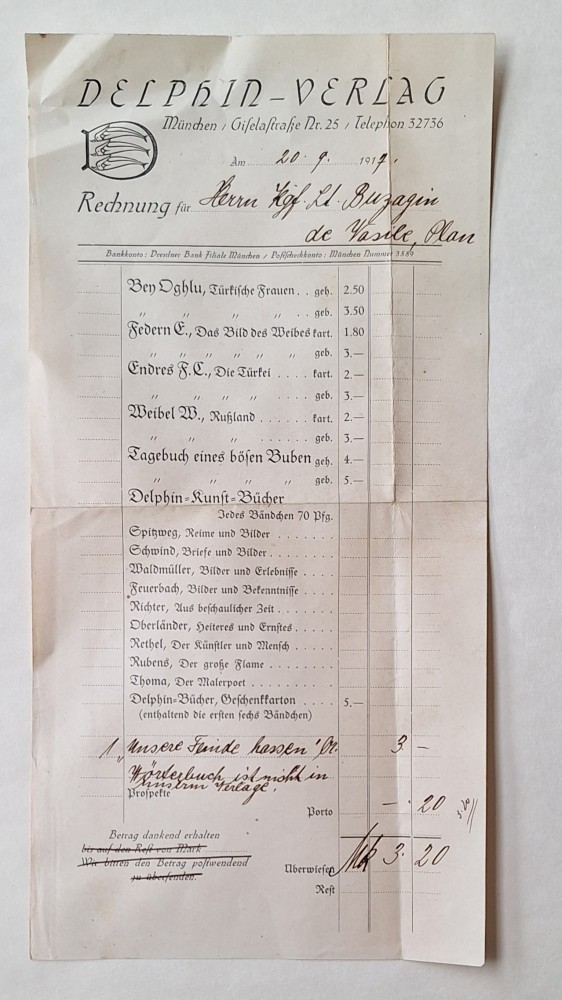 DELPHIN-VERLAG
München / Giselastraße Nr. 25 / Telephon 32736
Am 20. 9. 1917.
Rechnung für Herrn Kgf. Lt. Buzagin
de Vasile, Plan
Bankkonto: Dresdner Bank Filiale München / Postscheckkonto: München Nummer 3589
Bey Oghlu, Türkische Frauen . . geh. 2.50
〃 〃 〃 〃 . . geb. 3.50
Federn E., Das Bild des Weibes kart. 1.80
〃 〃 〃 〃 〃 〃 geb. 3.—
Endres F. C., Die Türkei . . . . kart. 2.—
〃 〃 〃 〃 . . . . geb. 3.—
Weibel W., Rußland . . . . . . kart. 2.—
〃 〃 〃 . . . . . . geb. 3.—
Tagebuch eines bösen Buben geh. 4.—
〃 〃 〃 〃 geb. 5.—
Delphin=Kunst=Bücher
Jedes Bändchen 70 Pfg.
Spitzweg, Reime und Bilder . . . . . . .
Schwind, Briefe und Bilder . . . . . . . .
Waldmüller, Bilder und Erlebnisse . . . .
Feuerbach, Bilder und Bekenntnisse . . .
Richter, Aus beschaulicher Zeit . . . . . .
Oberländer, Heiteres und Ernstes . . . . .
Rethel, Der Künstler und Mensch . . . . .
Rubens, Der große Flame . . . . . . . .
Thoma, Der Malerpoet . . . . . . . . . .
Delphin=Bücher, Geschenkkarton . . . . 5.—
(enthaltend die ersten sechs Bändchen)
1 „Unsere Feinde hassen" 3 —
Wörterbuch ist nicht in
unserm Verlage.
Prospekte
Porto — 20
Betrag dankend erhalten
bis auf den Rest von Mark
Wir bitten den Betrag postwendend
zu übersenden.
Überwiesen Mk 3. 20
Rest